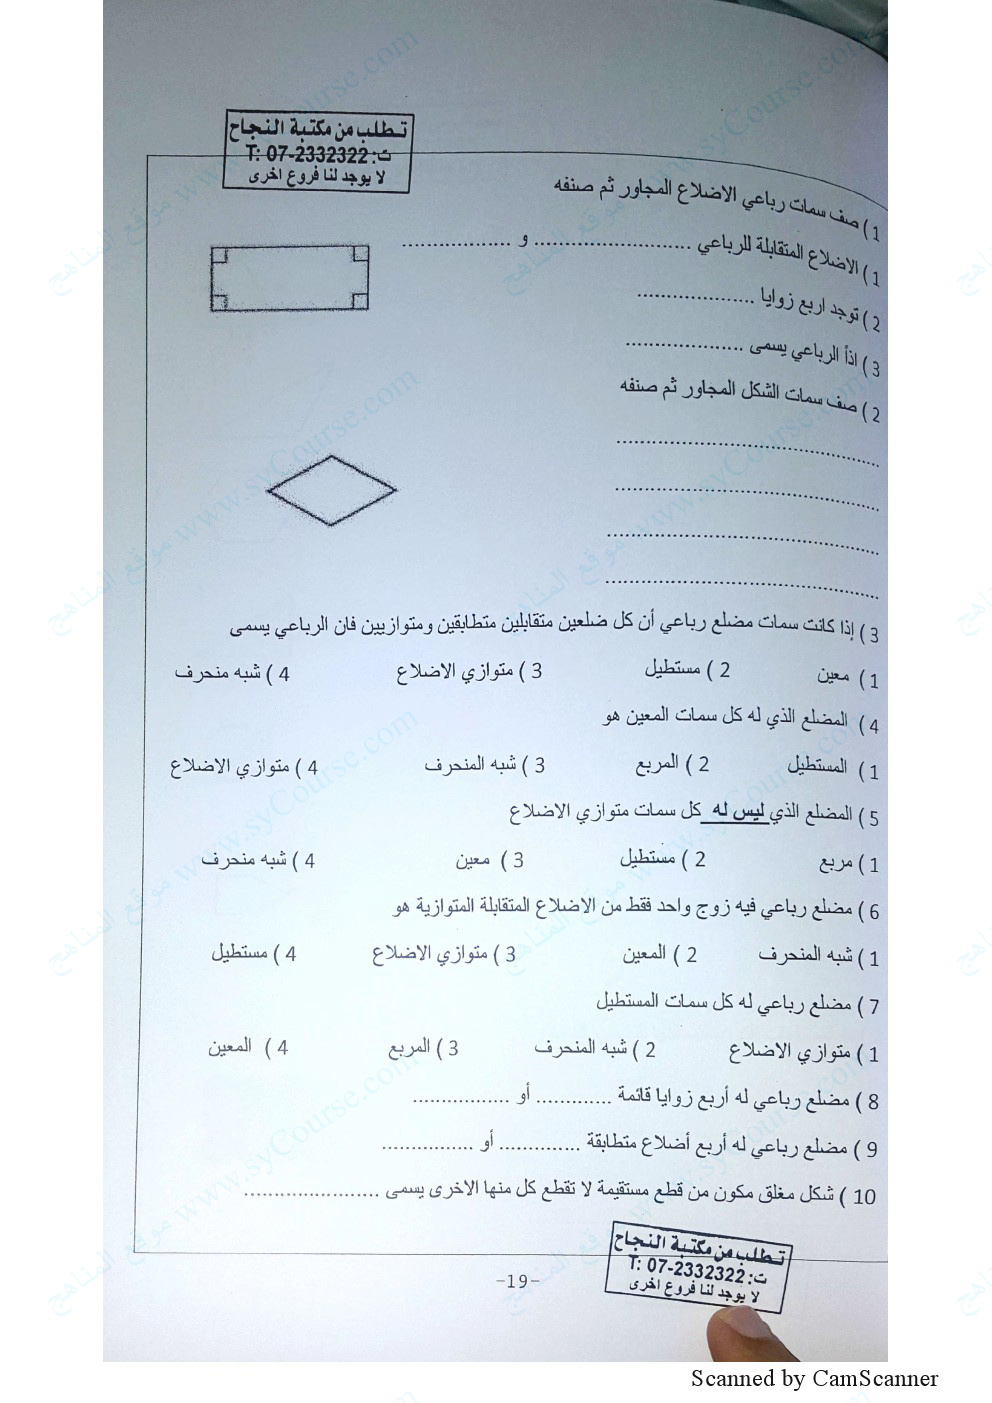 تطلب من مكتبة النجاح
ت: T: 07-2332322
لا يوجد لنا فروع اخرى
1 ) صف سمات رباعي الاضلاع المجاور ثم صنفه
1 ) الاضلاع المتقابلة للرباعي .......................... و ..................
2 ) توجد اربع زوايا ....................
3 ) اذاً الرباعي يسمى ....................
2 ) صف سمات الشكل المجاور ثم صنفه
............................................
............................................
............................................
............................................
3 ) إذا كانت سمات مضلع رباعي أن كل ضلعين متقابلين متطابقين ومتوازيين فان الرباعي يسمى
1 ) معين 2 ) مستطيل 3 ) متوازي الاضلاع 4 ) شبه منحرف
4 ) المضلع الذي له كل سمات المعين هو
1 ) المستطيل 2 ) المربع 3 ) شبه المنحرف 4 ) متوازي الاضلاع
5 ) المضلع الذي ليس له كل سمات متوازي الاضلاع
1 ) مربع 2 ) مستطيل 3 ) معين 4 ) شبه منحرف
6 ) مضلع رباعي فيه زوج واحد فقط من الاضلاع المتقابلة المتوازية هو
1 ) شبه المنحرف 2 ) المعين 3 ) متوازي الاضلاع 4 ) مستطيل
7 ) مضلع رباعي له كل سمات المستطيل
1 ) متوازي الاضلاع 2 ) شبه المنحرف 3 ) المربع 4 ) المعين
8 ) مضلع رباعي له أربع زوايا قائمة ............. أو ................
9 ) مضلع رباعي له أربع أضلاع متطابقة .............. أو ................
10 ) شكل مغلق مكون من قطع مستقيمة لا تقطع كل منها الاخرى يسمى .......................
تطلب من مكتبة النجاح
ت: T: 07-2332322
لا يوجد لنا فروع اخرى
-19-
Scanned by CamScanner
موقع المناهج www.syCourse.com